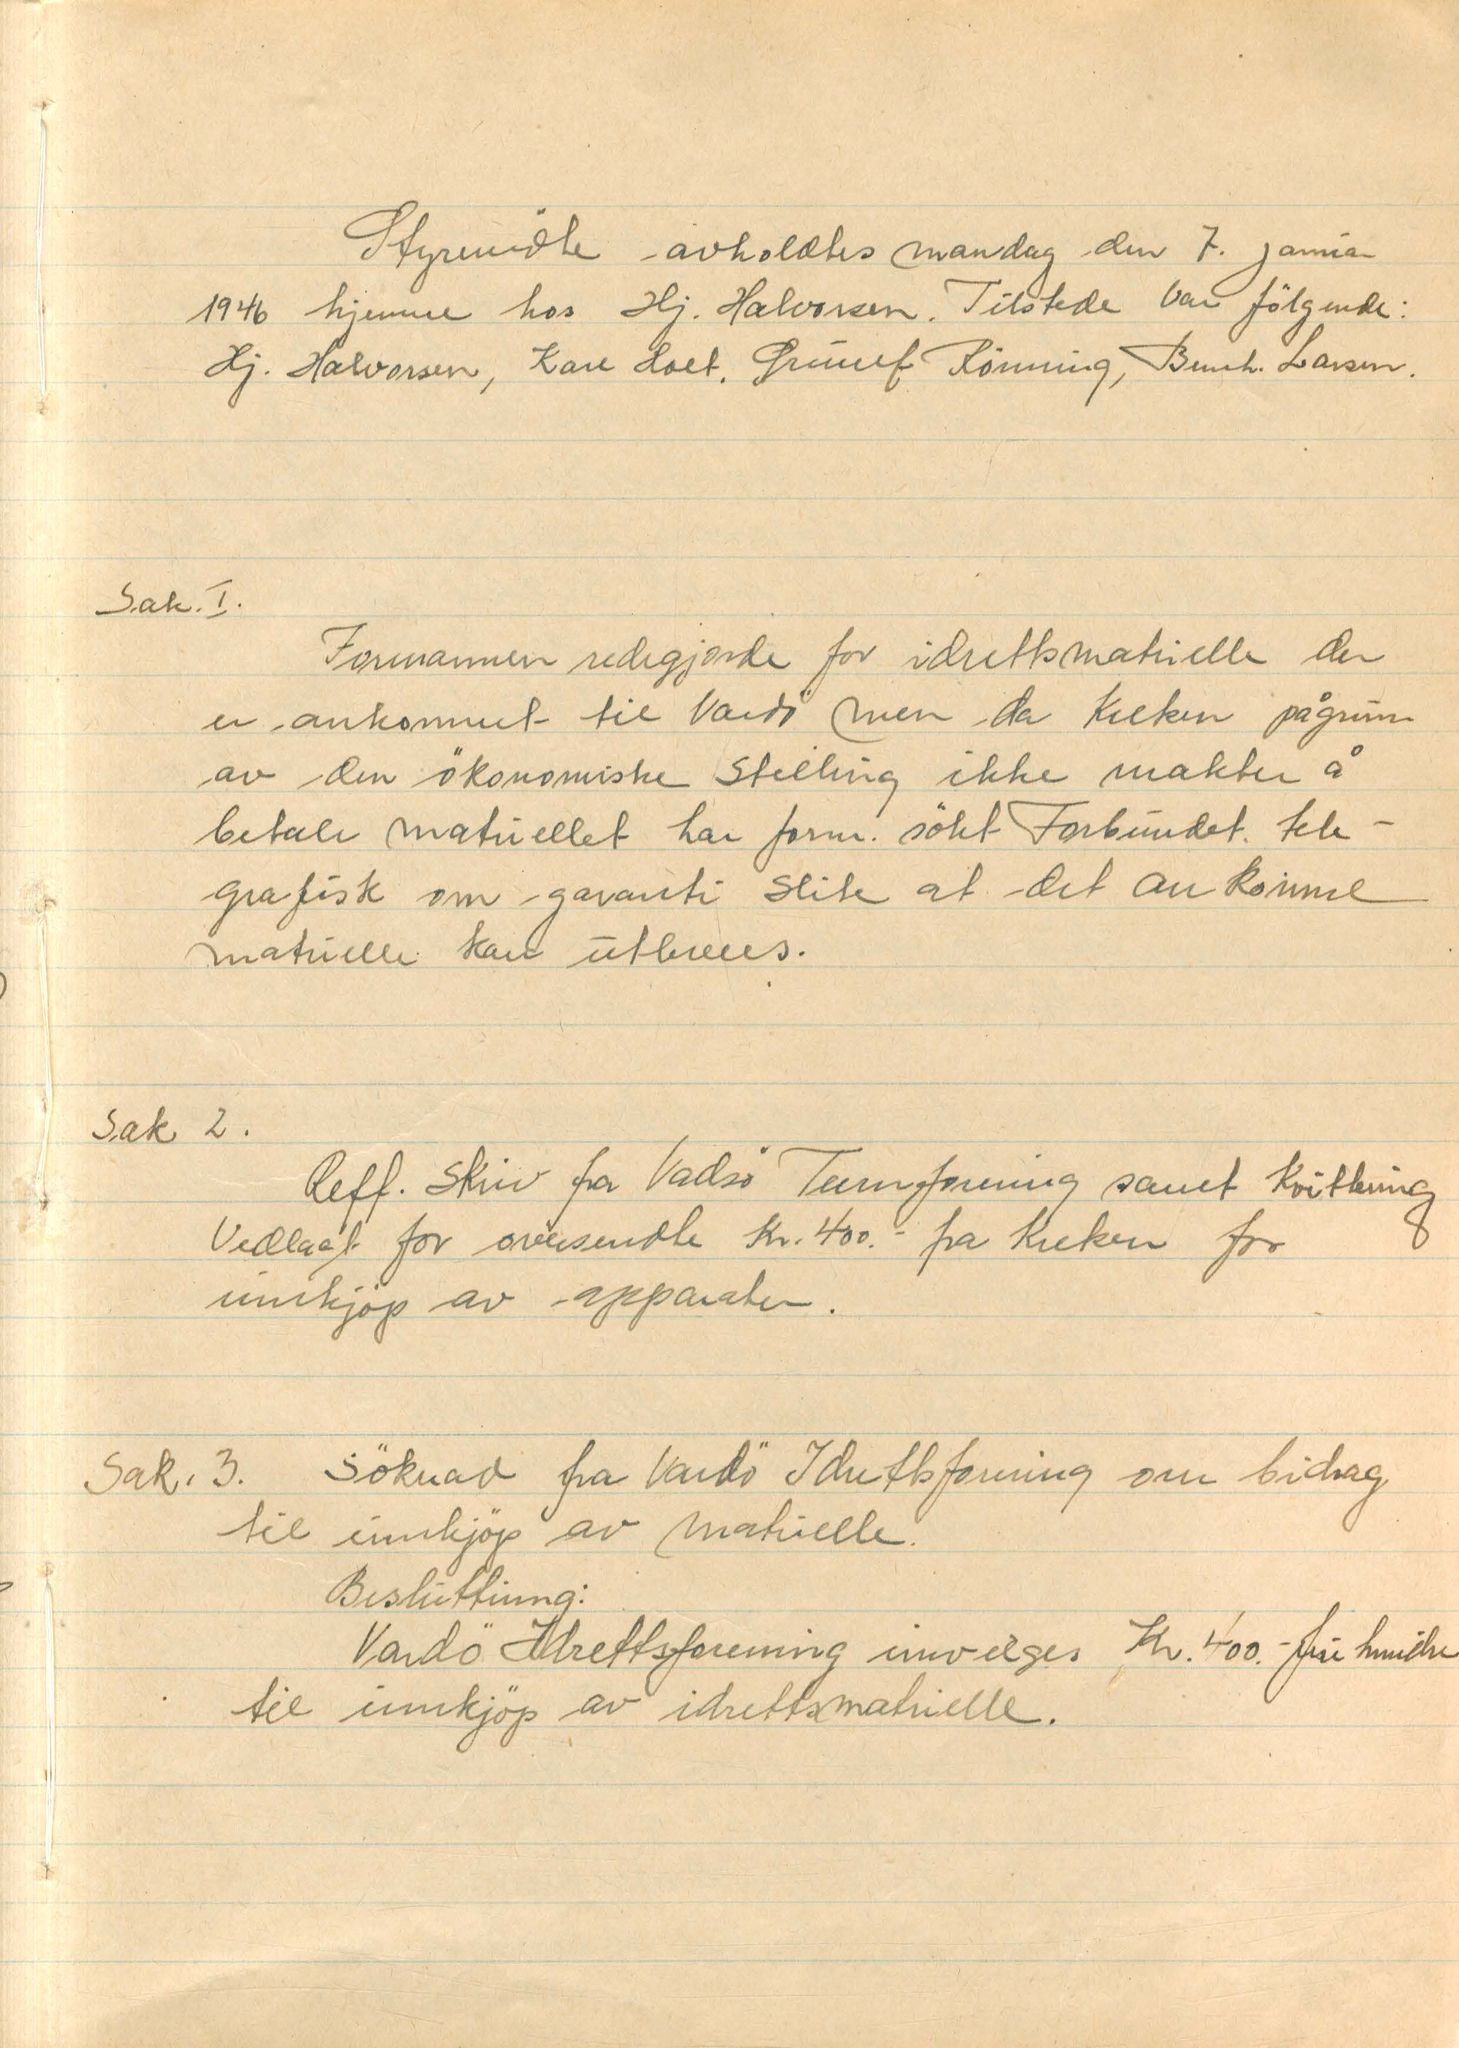 Styremöte avholdtes mandag den 7. januar
1946 hjemme hos Hj. Halvorsen. Tilstede var fölgende:
Hj. Halvorsen, Kåre Holt, Rönning, Bernh. Larsen.
Sak. I.
Formannen redegjorde for idrettsmatrielle der
er ankommet til Vardö men da Kretsen pågrunn
av den ökonomiske stilling ikke makter å
betale matriellet har form. sökt Forbundet tele-
grafisk om garanti slik at det ankomne
matrielle kan utleveres.
Sak 2.
Reff. skriv fra Vadsö Turnforening samt kvittering
Vedlagt for oversendte Kr. 400.- fra Kretsen for
innkjöp av apparater.
Sak. 3. Söknad fra Vardö Idrettsforening om bidrag
til innkjöp av matrielle.
Besluttning:
Vardö Idrettsforening innvilges Kr. 400.- fire hundre
til innkjöp av idrettsmatrielle.